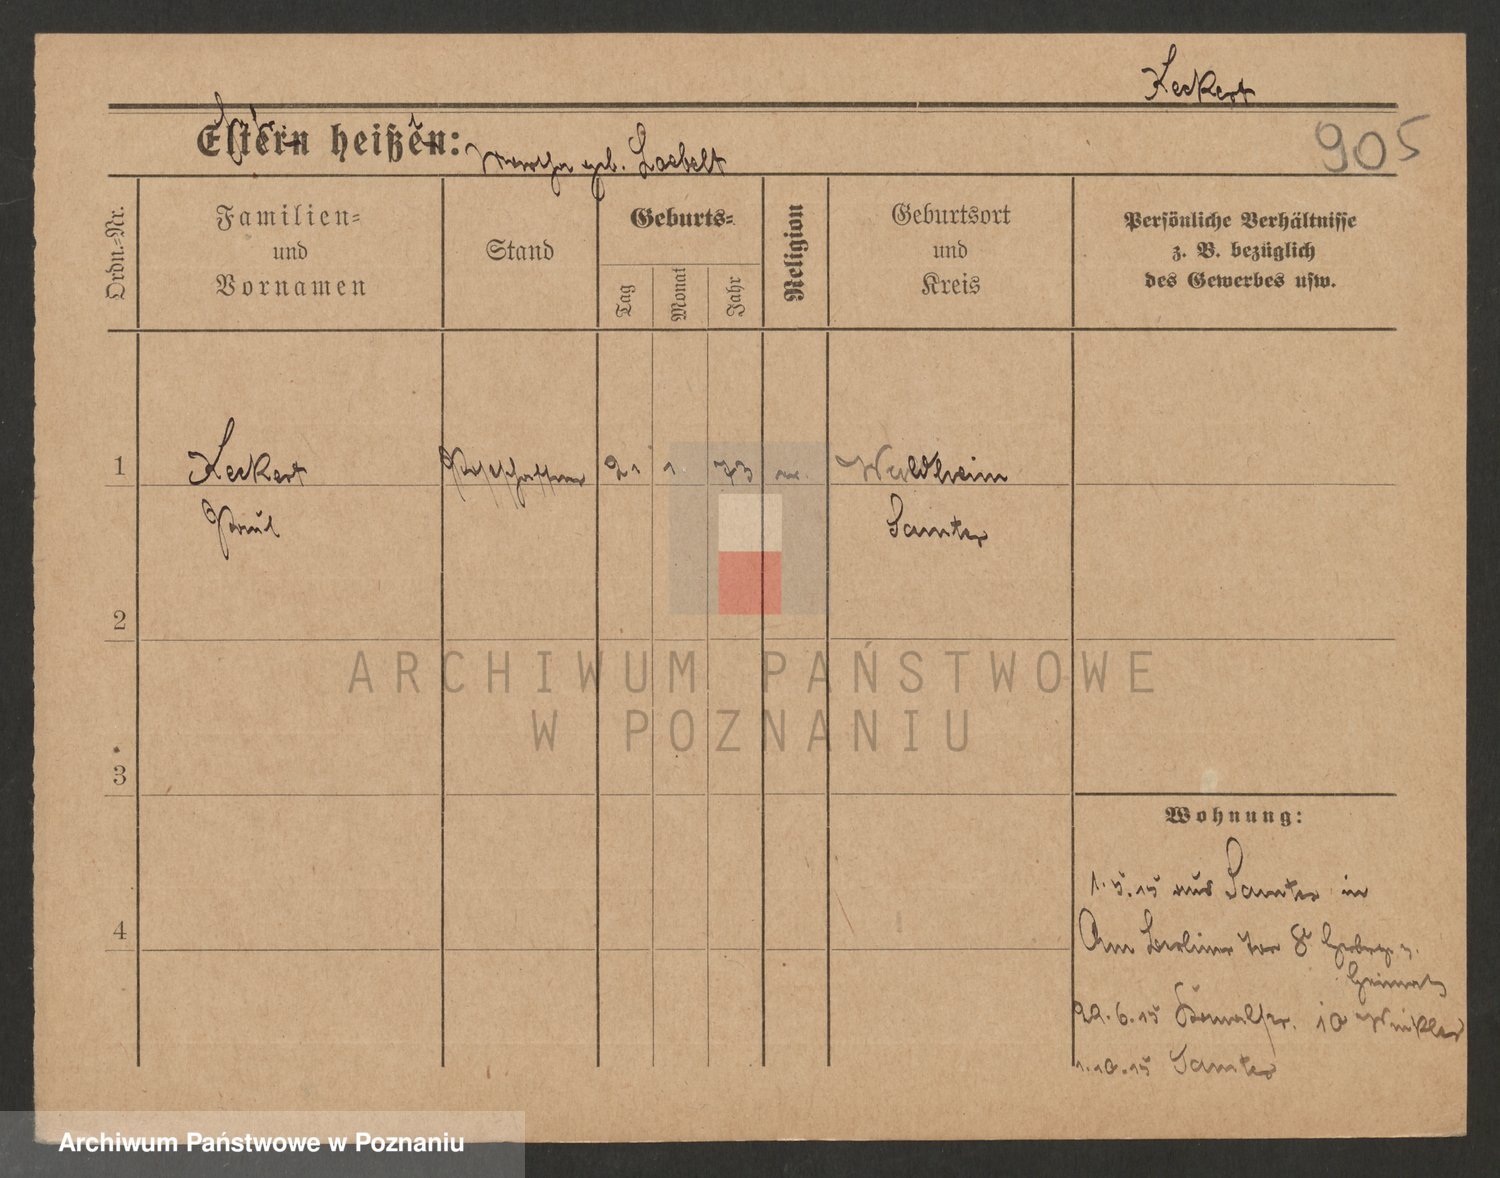 Keckert
905
Eltern heißen:
geb.
Ordn.-Nr.
Familien-
und
Vornamen
Stand
Geburts-
Tag
Monat
Jahr
Religion
Geburtsort
und
Kreis
Persönliche Verhältnisse
z. B. bezüglich
des Gewerbes usw.
1
Keckert
21
1.
73
Waldheim
Paul
Samter
2
ARCHIWUM PAŃSTWOWE
W POZNANIU
3
Wohnung:
1.5.15 aus Samter in
4
Am Berliner Tor 8
22.6.15 10 Winkler
1.10.15 Samter
Archiwum Państwowe w Poznaniu